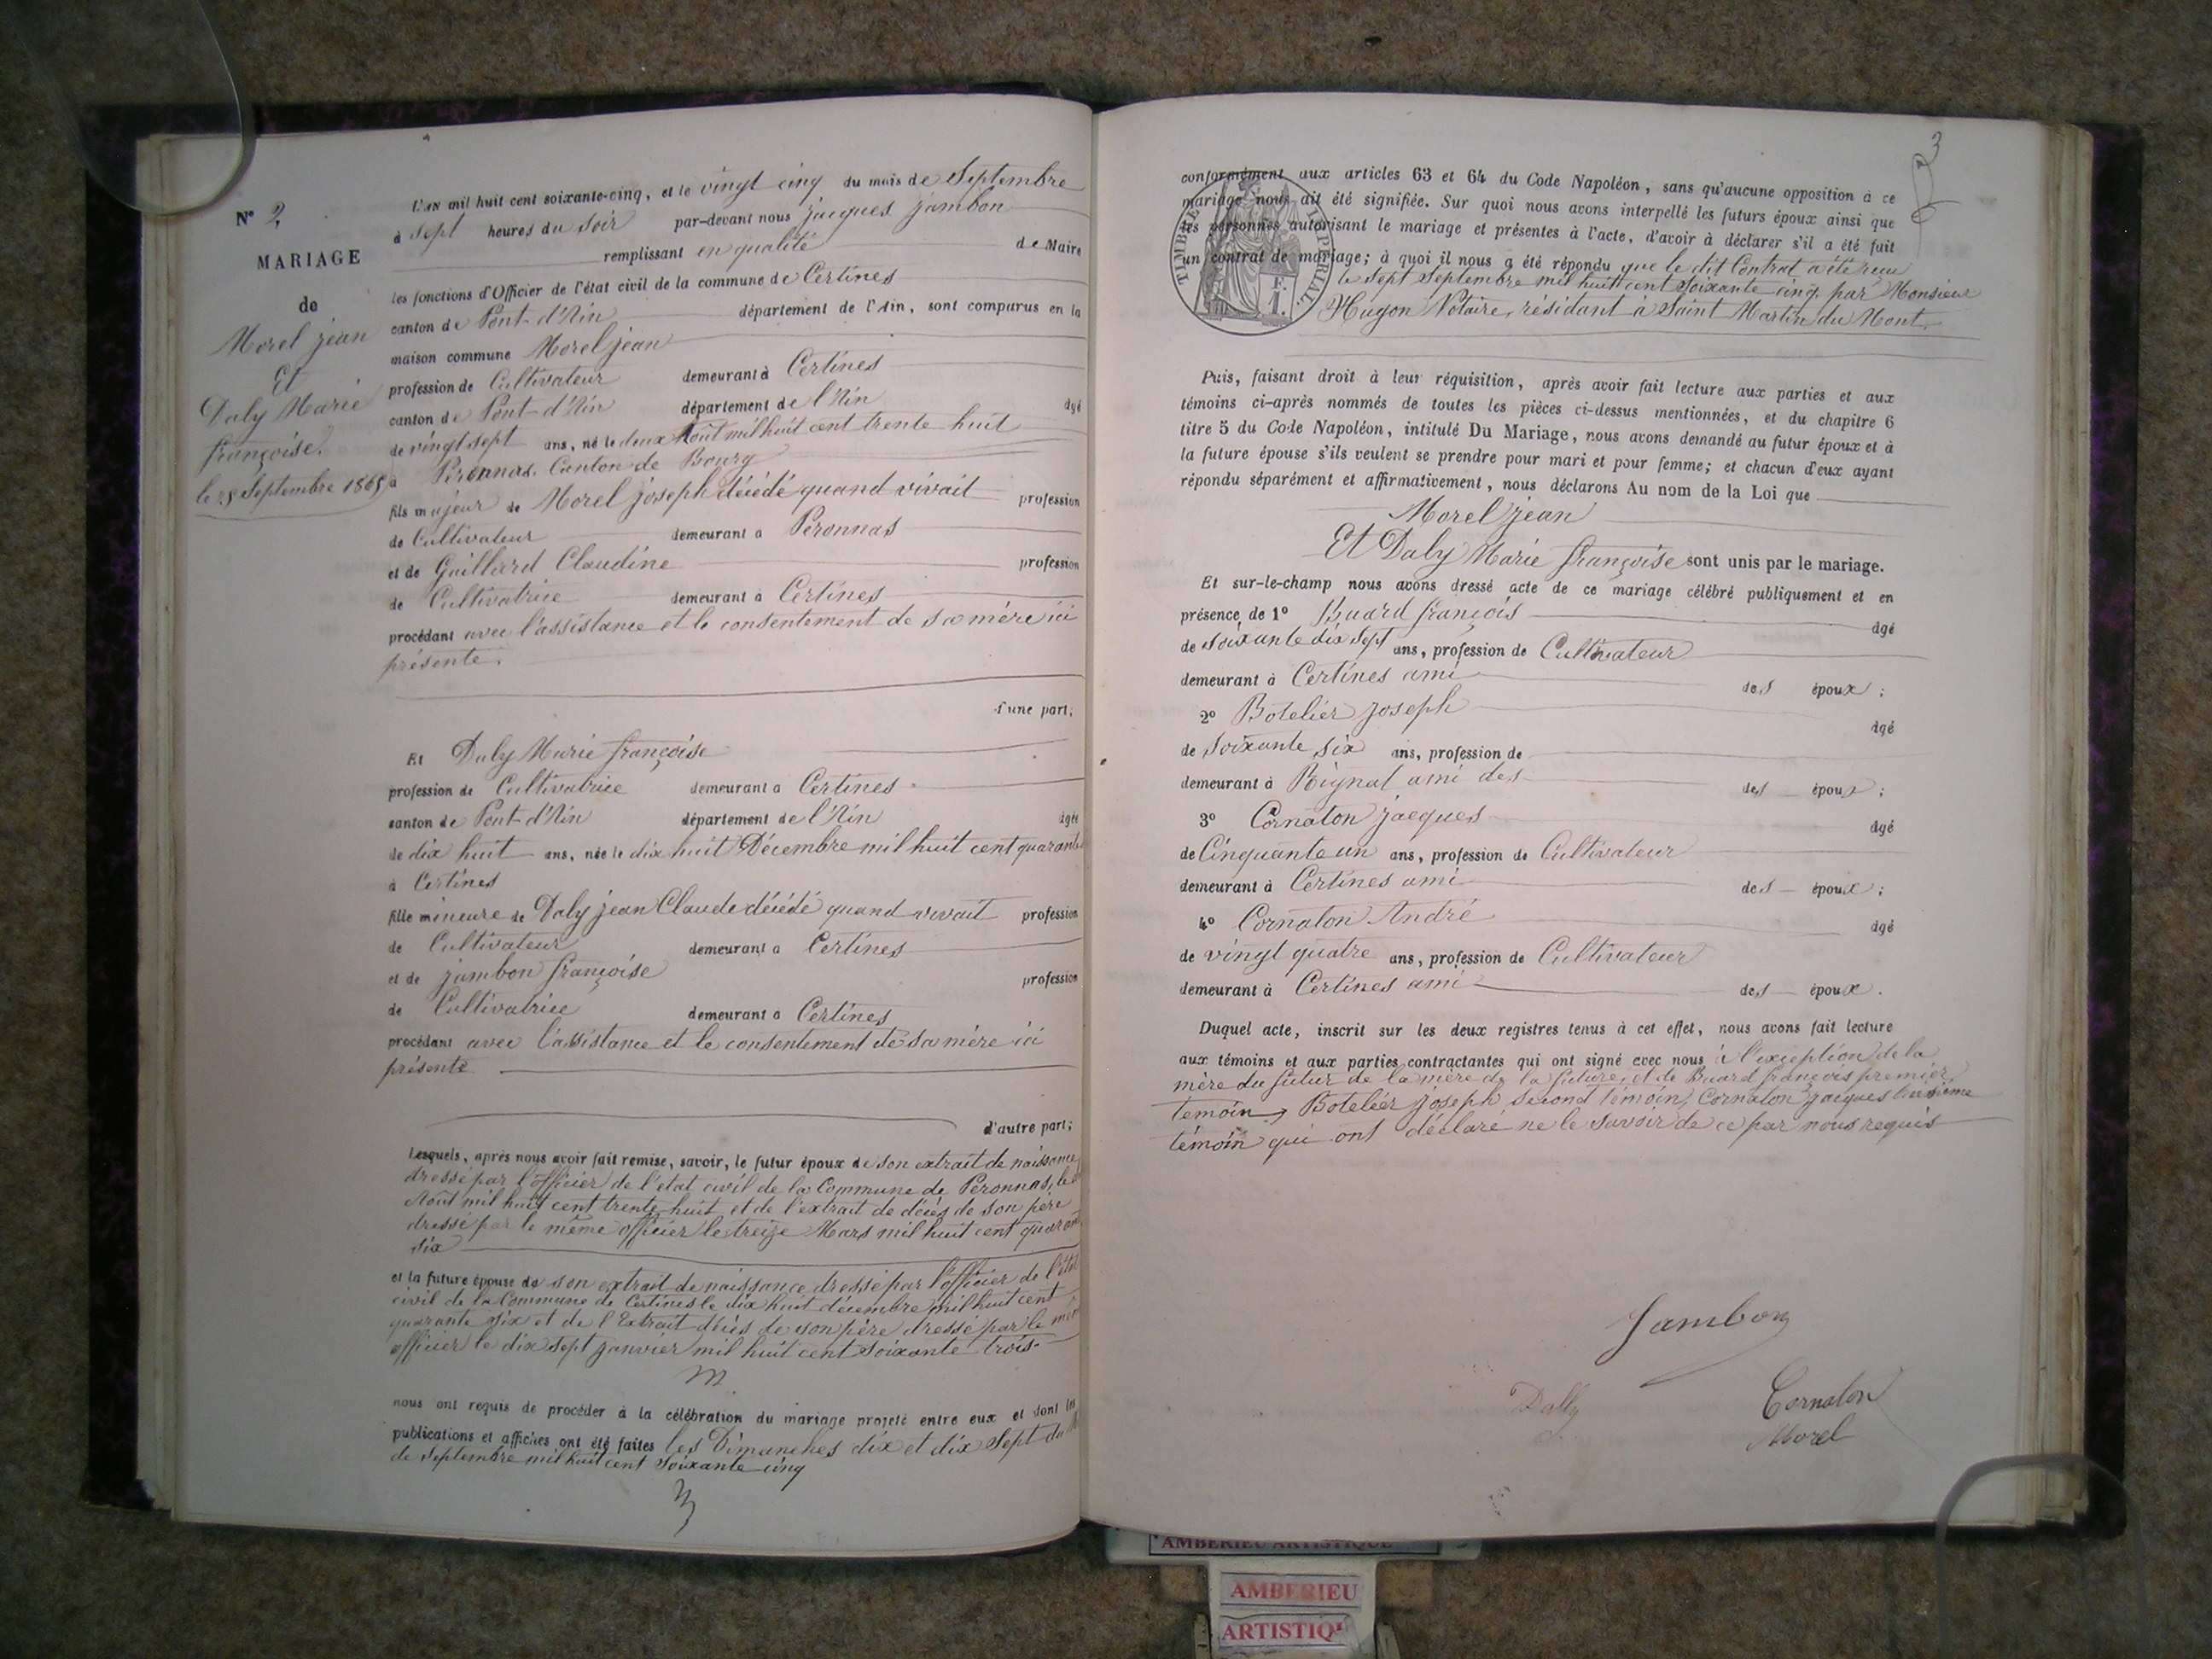 N° 2
MARIAGE
de
Morel jean
Et
Daly Marie
françoise.
le 25 Septembre 1865
L'AN mil huit cent soixante-cinq, et le vingt cinq du mois de Septembre
à sept heures du soir par-devant nous jacques jambon
remplissant en qualité de Maire
les fonctions d'Officier de l'état civil de la commune de Certines
canton de Pont-d'Ain département de l'Ain, sont comparus en la
maison commune Morel jean
profession de Cultivateur demeurant à Certines
canton de Pont-d'Ain département de l'Ain âgé
de vingt sept ans, né le deux Août mil huit cent trente huit
à Péronnas Canton de Bourg
fils majeur de Morel joseph décédé quand vivait profession
de Cultivateur demeurant à Péronnas
et de Guillard Claudine profession
de Cultivatrice demeurant à Certines
procédant avec l'assistance et le consentement de sa mère ici
présente.
d'une part;
Et Daly Marie françoise
profession de Cultivatrice demeurant à Certines
canton de Pont-d'Ain département de l'Ain âgée
de dix huit ans, née le dix huit Décembre mil huit cent quarante
à Certines
fille mineure de Daly jean Claude décédé quand vivait profession
de Cultivateur demeurant à Certines
et de jambon françoise profession
de Cultivatrice demeurant à Certines
procédant avec l'assistance et le consentement de sa mère ici
présente
d'autre part;
Lesquels, après nous avoir fait remise, savoir, le futur époux de son extrait de naissance
dressé par l'officier de l'état civil de la Commune de Péronnas, le
Août mil huit cent trente huit et de l'extrait de décès de son père
dressé par le même officier le treize Mars mil huit cent quarante
six
et la future épouse de son extrait de naissance dressé par l'officier de l'état
civil de la Commune de Certines le dix huit décembre mil huit cent
quarante six et de l'Extrait décès de son père dressé par le même
officier le dix sept janvier mil huit cent soixante trois
nous ont requis de procéder à la célébration du mariage projeté entre eux et dont les
publications et affiches ont été faites les Dimanches dix et dix sept du
de Septembre mil huit cent soixante cinq
3
TIMBRE IMPERIAL
1 F.
conformément aux articles 63 et 64 du Code Napoléon, sans qu'aucune opposition à ce
mariage nous ait été signifiée. Sur quoi nous avons interpellé les futurs époux ainsi que
les personnes autorisant le mariage et présentes à l'acte, d'avoir à déclarer s'il a été fait
un contrat de mariage; à quoi il nous a été répondu que le dit Contrat a été reçu
le sept Septembre mil huit cent soixante cinq par Monsieur
Hugon Notaire, résidant à Saint Martin du Mont.
Puis, faisant droit à leur réquisition, après avoir fait lecture aux parties et aux
témoins ci-après nommés de toutes les pièces ci-dessus mentionnées, et du chapitre 6
titre 5 du Code Napoléon, intitulé Du Mariage, nous avons demandé au futur époux et à
la future épouse s'ils veulent se prendre pour mari et pour femme; et chacun d'eux ayant
répondu séparément et affirmativement, nous déclarons Au nom de la Loi que
Morel jean
Et Daly Marie françoise sont unis par le mariage.
Et sur-le-champ nous avons dressé acte de ce mariage célébré publiquement et en
présence de 1° Buard françois âgé
de soixante dix sept ans, profession de Cultivateur
demeurant à Certines ami des époux;
2° Botelier joseph âgé
de soixante six ans, profession de
demeurant à Rignat ami des des époux;
3° Cornaton jacques âgé
de Cinquante un ans, profession de Cultivateur
demeurant à Certines ami des époux;
4° Cornaton André âgé
de vingt quatre ans, profession de Cultivateur
demeurant à Certines ami des époux.
Duquel acte, inscrit sur les deux registres tenus à cet effet, nous avons fait lecture
aux témoins et aux parties contractantes qui ont signé avec nous à l'exception de la
mère du futur de la mère de la future, et de Buard françois premier
temoin, Botelier joseph second témoin, Cornaton jacques troisième
témoin qui ont déclaré ne le savoir de ce par nous requis
Jambon
Dally
Cornaton
Morel
AMBERIEU ARTISTIQUE
AMBERIEU
ARTISTIQ